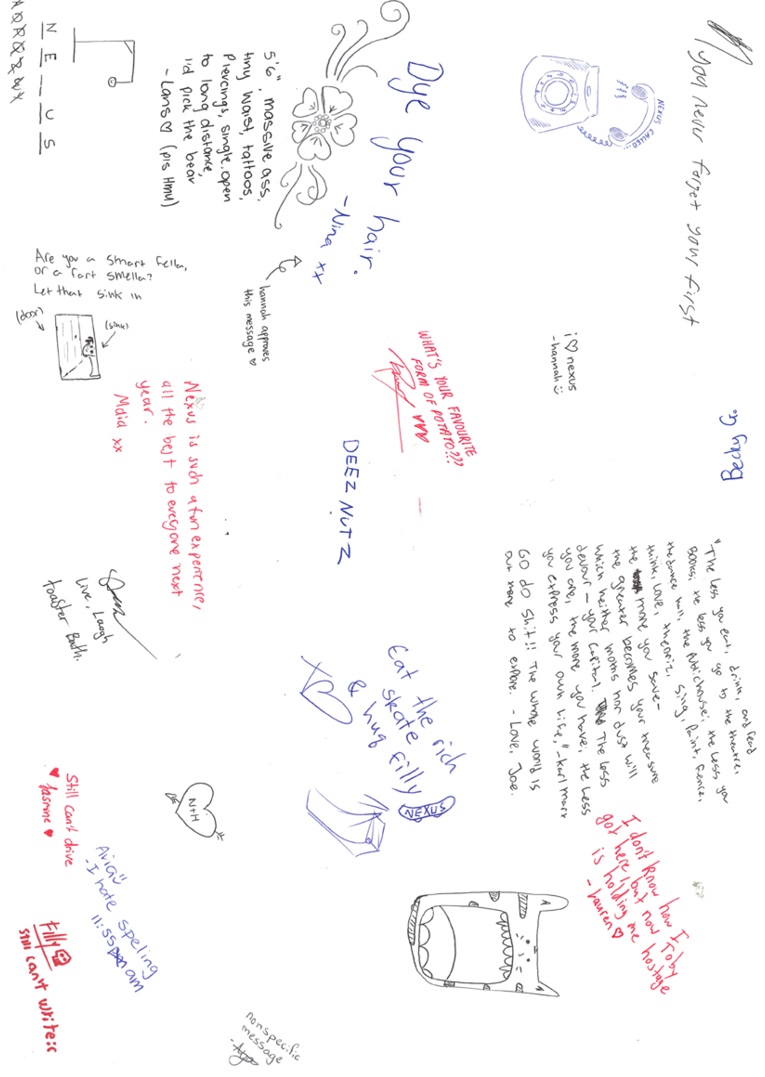 you never forget your first
NEXUS CALLED...
Dye your hair.
-Nina xx
hannah approves
this message ♡
5'6", massive ass,
tiny waist, tattoos,
piercings, single, open
to long distance,
I'd pick the bear
-Lans♡ (pls HMU)
N E _ U S
Are you a smart fella,
or a fart smella?
Let that sink in
(door)
(sink)
i ♡ nexus
-hannah :)
WHAT'S YOUR FAVOURITE
FORM OF POTATO???
DEEZ NUTZ
Becky G.
Nexus is such a fun experience,
all the best to everyone next
year.
xx
Live, Laugh
toaster Bath.
"The less you eat, drink, and read
books; the less you go to the theatre,
the dance hall, the public house; the less you
think, love, theorize, sing, paint, fence,
the more you save-
the greater becomes your treasure
which neither moths nor dust will
devour - your capital. The less
you are, the more you have; the less
you express your own life," - Karl Marx
GO do shit!! The whole world is
out there to explore. - Love, Joe.
Eat the rich
skate
& hug filly
NEXUS
N+H
Still can't drive
♥ Jasmine ♥
-I hate speling
11:55 am
Filly
Still can't write :c
I don't know how I
got here, but now Toby
is holding me hostage
-Lauren ♡
nonspecific
message